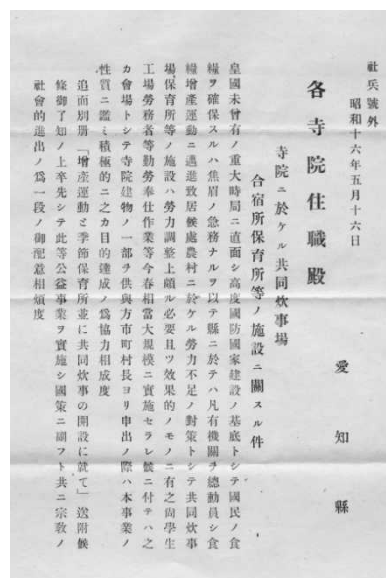 社兵號外
昭和十六年五月十六日
愛知縣
各寺院住職殿
寺院ニ於ケル共同炊事場
合宿所保育所等ノ施設ニ關スル件
皇國未曾有ノ重大時局ニ直面シ高度國防國家建設ノ基底トシテ國民ノ食
糧ヲ確保スルハ焦眉ノ急務ナルヲ以テ縣ニ於テハ凡有機關ヲ總動員シ食
糧增產運動ニ邁進致居候處農村ニ於ケル勞力不足ノ對策トシテ共同炊事
場保育所等ノ施設ハ勞力調整上頗ル必要且ツ效果的ノモノニ有之尙學生
工場勞務者等勤勞奉仕作業等今春相當大規模ニ實施セラレ候ニ付テハ之
カ會場トシテ寺院建物ノ一部ヲ供與方市町村長ヨリ申出ノ際ハ本事業ノ
性質ニ鑑ミ積極的ニ之カ目的達成ノ爲協力相成度
追而別册「增產運動と季節保育所並に共同炊事の開設に就て」送附候
條御了知ノ上率先シテ此等公益事業ヲ實施シ國策ニ副フト共ニ宗敎ノ
社會的進出ノ爲一段ノ御配意相煩度